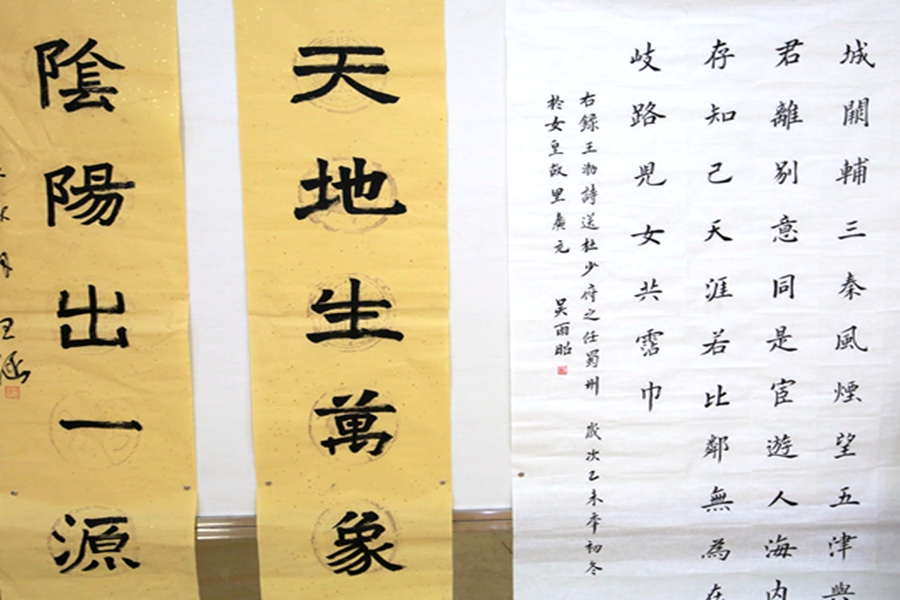 城闕輔三秦風煙望五津與
君離別意同是宦遊人海内
存知己天涯若比鄰無為在
岐路兒女共霑巾
右錄王勃詩送杜少府之任蜀州 歲次乙未年初冬
於女皇故里廣元 吴雨昭
天地生萬象
陰陽出一源